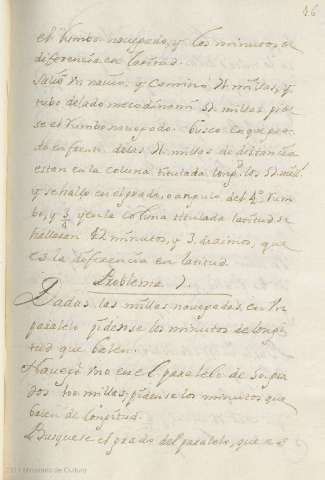 46
el Rumbo navegado, y los minutos de
diferencia en latitud.
Salio Vn navio, y Camino 71 millas, y
tubo de lado mecodinomi 57 millas pide
se el Rumbo navegado. busco en que par
de enfrente de las 71 millas de distancia
estan en la coluna titulada longd. los 57 mil.
y se halla en el grado, o angulo del 4º. Rum
bo, y en la Coluna titulada latitud se
hallaran 42 minutos, y 3. decimos, que
es la diferencia en latitud.
Problema 7.
Dadas las millas navegadas en Vn
paralelo pidense los minutos de longi
tud que balen.
Navego Vno en el paralelo de 50 gra
dos 100 millas, pidense los minutos que
balen de longitud.
Busquese el grado del paralelo, que es
2011 Ministerio de Cultura